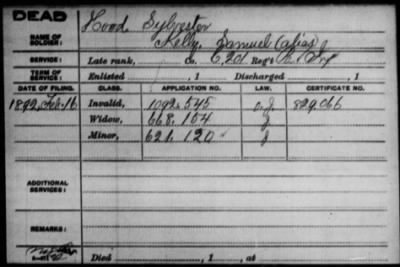 DEAD
Hood Sylvester
NAME OF SOLDIER:
Kelly, Samuel (alias)
SERVICE:
Late rank, Co. C, 201 Reg't Pa. Inf
TERM OF SERVICE:
Enlisted , 1 Discharged , 1
DATE OF FILING. CLASS. APPLICATION NO. LAW. CERTIFICATE NO.
1892, Feb. 16 Invalid, 1092.545 829066
Widow, 668.154
Minor, 621.120
ADDITIONAL SERVICES:
REMARKS:
Died , 1 , at